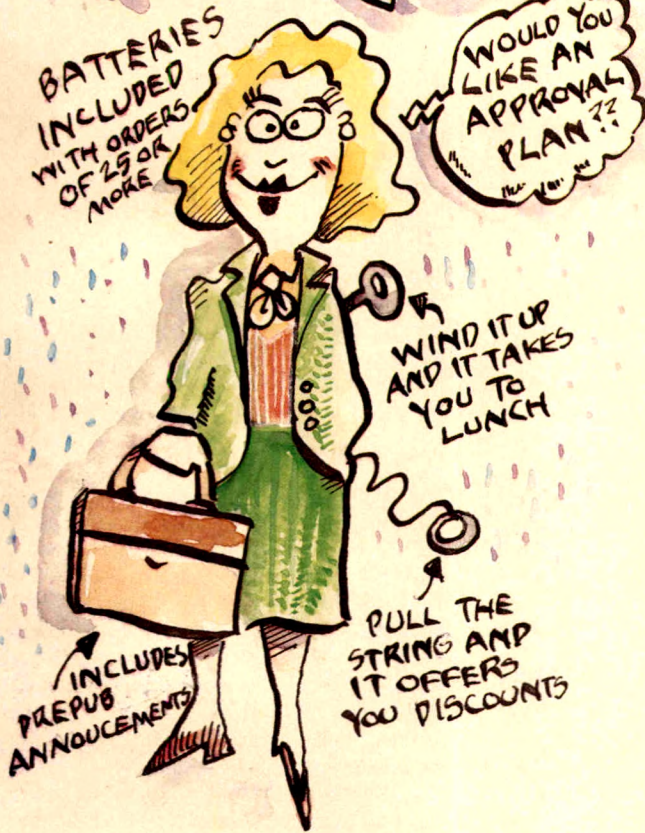 BATTERIES
INCLUDED
WITH ORDERS
OF 25 OR
MORE
WOULD YOU
LIKE AN
APPROVAL
PLAN??
WIND IT UP
AND IT TAKES
YOU TO
LUNCH
PULL THE
STRING AND
IT OFFERS
YOU DISCOUNTS
INCLUDES
PREPUB
ANNOUCEMENTS